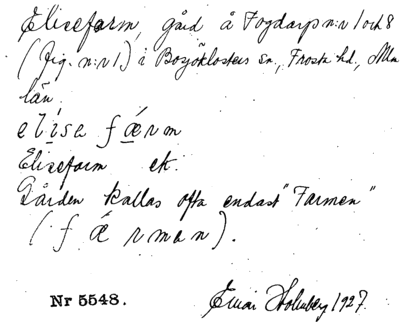 Elisefarm, gård å Fogdarp n:r 1 och 8
(fig. n:r 1.) i Bosjöklosters sn, Frosta hd, Mlm
län,
elisa fǽrm
Elisefarm ek.
Gården kallas ofta endast "Farmen"
(fǽrman).
Nr 5548. Einar Holmberg 1927.